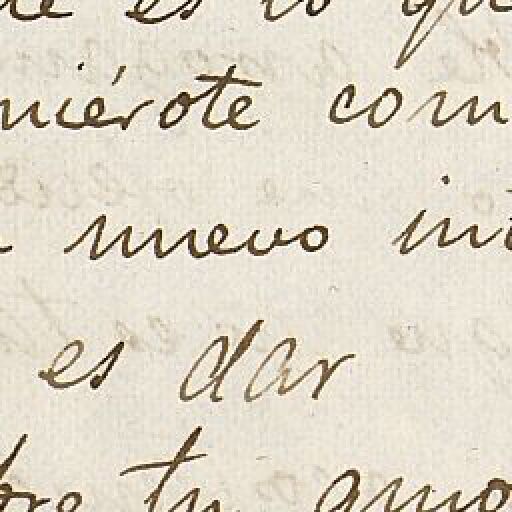 es lo que
niérote com
nuevo int
es dar
bre tu amo